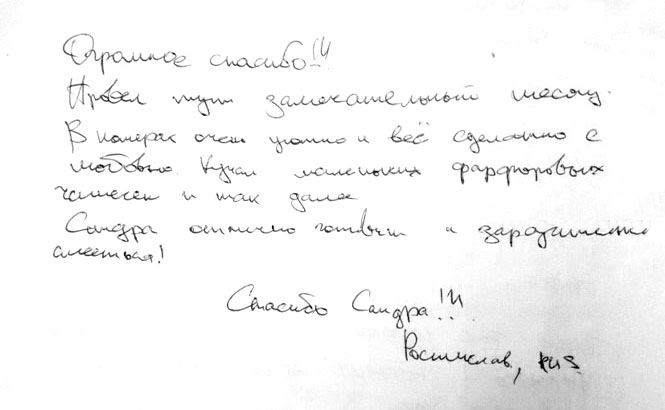 Огромное спасибо!!!
Провел тут замечательный месяц.
В номерах очен уютно и всё сделанно с
любовью. Кучал маленьких фарфоровых
чашечек и так далее
Сандра отлично готовит и заразительно
смееться!
Спасибо Сандра!!!
Ростислав,